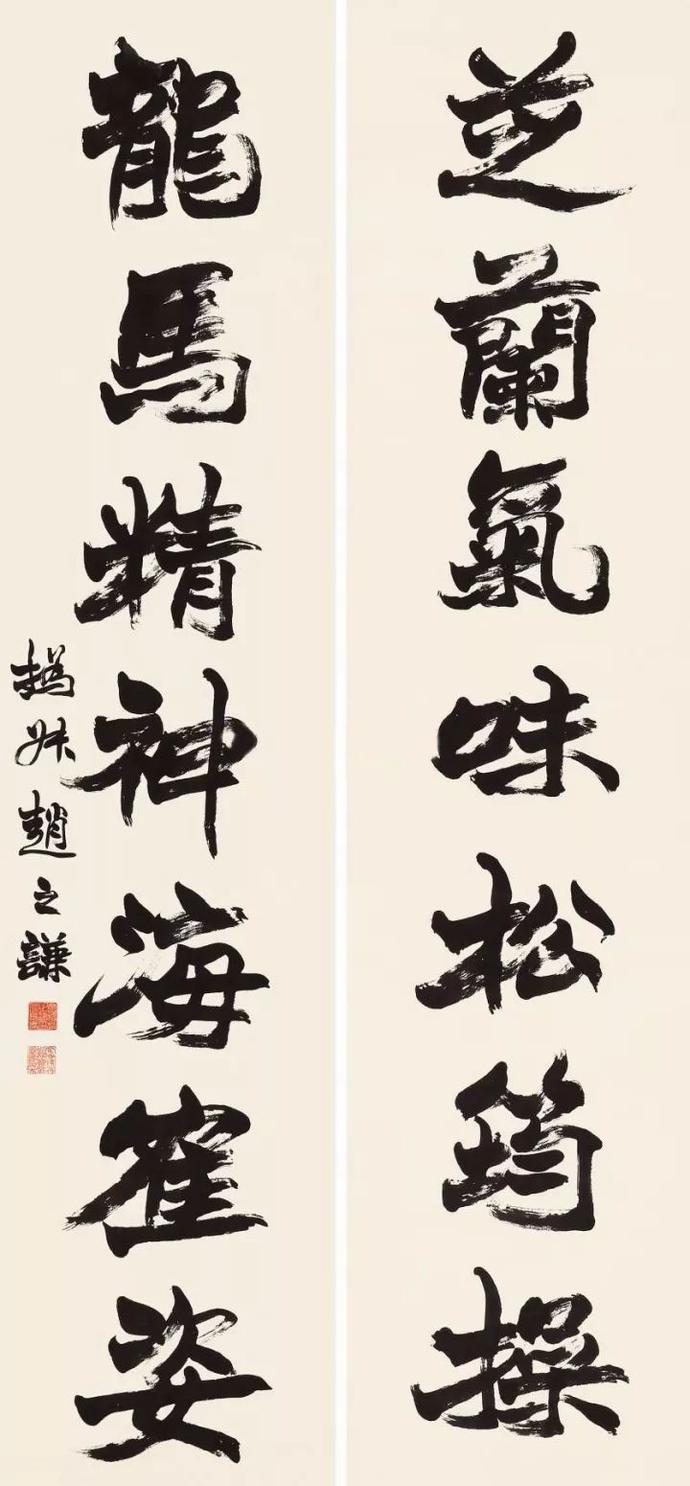 芝蘭氣味松筠操
龍馬精神海寉姿
撝叔趙之謙